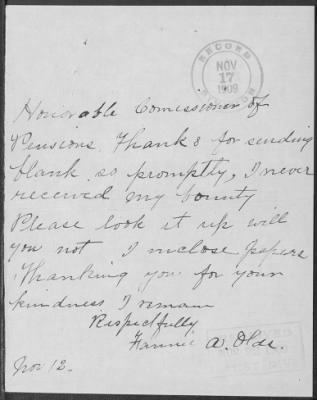 RECORD
NOV
17
1909
DIVISION
Honorable Comissioner of
Pensions. Thanks for sending
blank so promptly, I never
received my bounty
Please look it up will
you not I inclose papers
Thanking you for your
kindness I remain
Respectfully
Fannie A. Olds.
Nov 12.